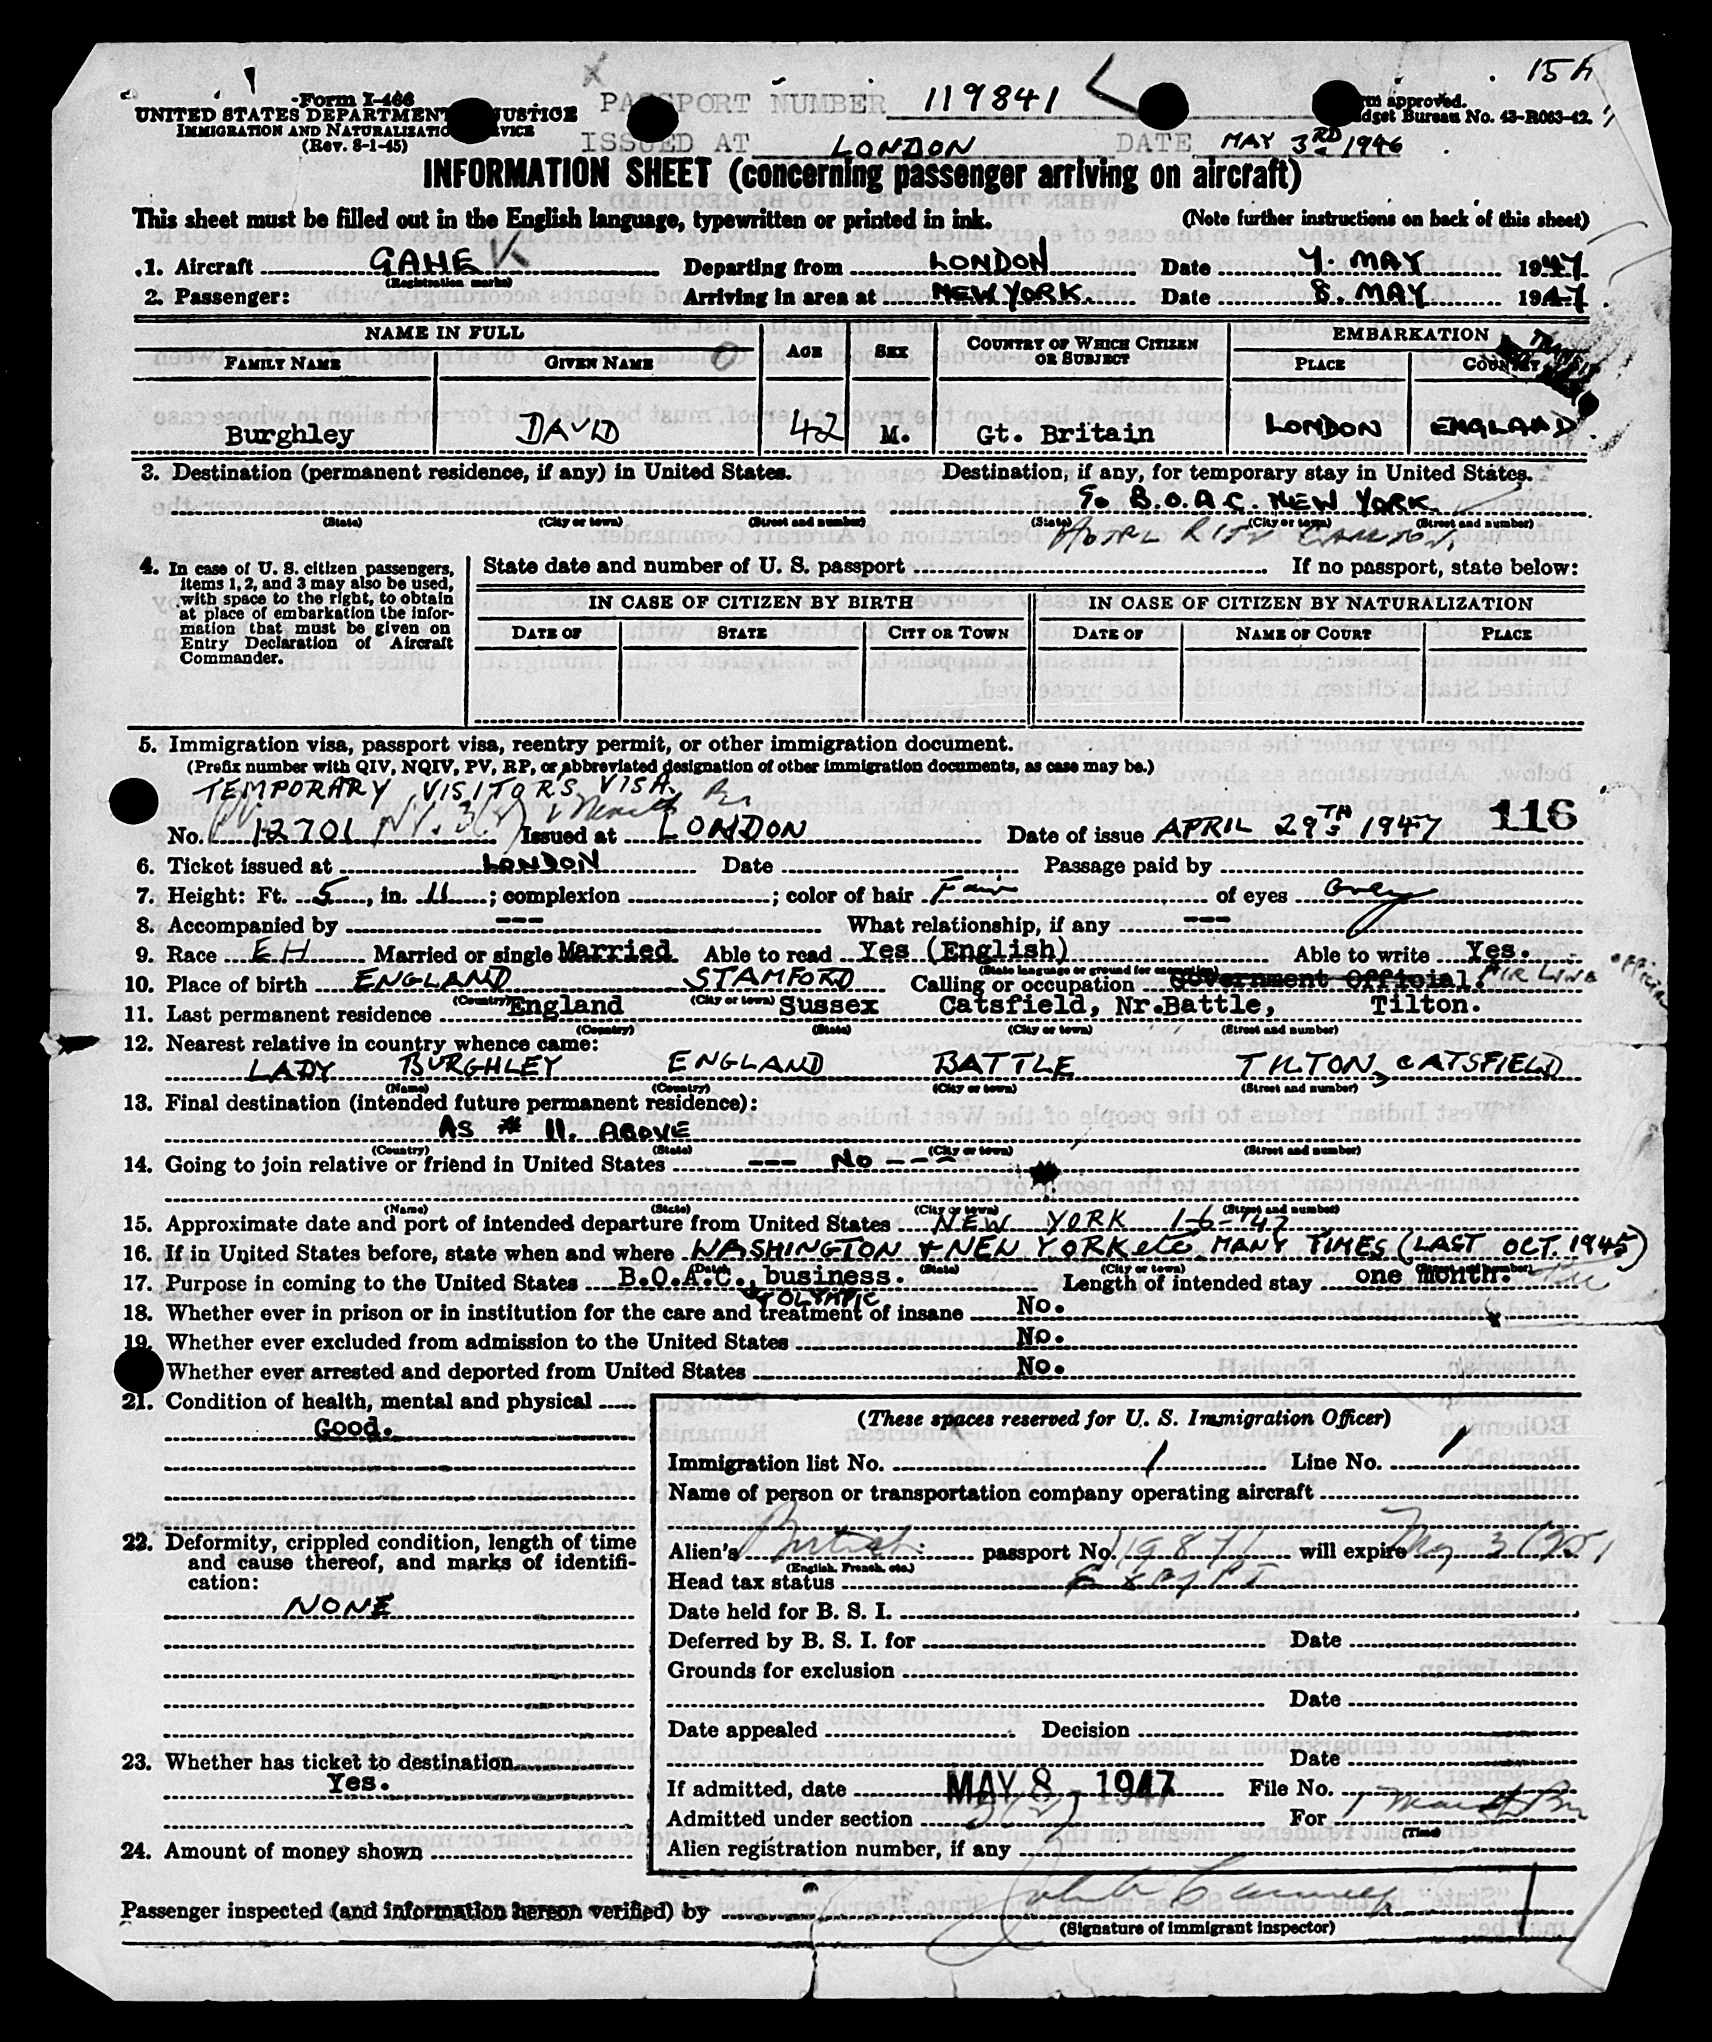 15A
Form I-466
UNITED STATES DEPARTMENT JUSTICE
IMMIGRATION AND NATURALIZATION SERVICE
(Rev. 8-1-45)
PASSPORT NUMBER 119841
ISSUED AT LONDON DATE MAY 3RD 1946
Form approved.
Budget Bureau No. 43-R063-42.
INFORMATION SHEET (concerning passenger arriving on aircraft)
This sheet must be filled out in the English language, typewritten or printed in ink. (Note further instructions on back of this sheet)
1. Aircraft GAHEK Departing from LONDON Date 7. MAY 1947
(Registration marks)
2. Passenger: Arriving in area at NEW YORK. Date 8. MAY 1947
NAME IN FULL AGE SEX COUNTRY OF WHICH CITIZEN OR SUBJECT EMBARKATION
FAMILY NAME GIVEN NAME PLACE COUNTRY
Burghley DAVID 42 M. Gt. Britain LONDON ENGLAND.
3. Destination (permanent residence, if any) in United States. Destination, if any, for temporary stay in United States.
% B.O.A.C. NEW YORK.
(State) (City or town) (Street and number) (State) (City or town) (Street and number)
HOTEL RITZ CARLTON.
4. In case of U. S. citizen passengers, items 1, 2, and 3 may also be used, with space to the right, to obtain at place of embarkation the information that must be given on Entry Declaration of Aircraft Commander.
State date and number of U. S. passport If no passport, state below:
IN CASE OF CITIZEN BY BIRTH IN CASE OF CITIZEN BY NATURALIZATION
DATE OF STATE CITY OR TOWN DATE OF NAME OF COURT PLACE
5. Immigration visa, passport visa, reentry permit, or other immigration document.
(Prefix number with QIV, NQIV, PV, RP, or abbreviated designation of other immigration documents, as case may be.)
TEMPORARY VISITOR'S VISA.
No. 12701 Issued at LONDON Date of issue APRIL 29TH 1947 116
6. Ticket issued at LONDON Date Passage paid by
7. Height: Ft. 5, in. 11; complexion ; color of hair Fair of eyes Grey
8. Accompanied by --- What relationship, if any ---
9. Race EH Married or single Married Able to read Yes (English) Able to write Yes.
(State language or ground for exemption)
10. Place of birth ENGLAND STAMFORD Calling or occupation Government Official. AIR LINE OFFICIAL
(Country) (City or town)
11. Last permanent residence England Sussex Catsfield, Nr.Battle, Tilton.
(Country) (State) (City or town) (Street and number)
12. Nearest relative in country whence came:
LADY BURGHLEY ENGLAND BATTLE TILTON, CATSFIELD
(Name) (Country) (City or town) (Street and number)
13. Final destination (intended future permanent residence):
AS # 11. ABOVE
(Country) (State) (City or town) (Street and number)
14. Going to join relative or friend in United States --- NO ---
(Name) (State) (City or town) (Street and number)
15. Approximate date and port of intended departure from United States NEW YORK 1-6-47
16. If in United States before, state when and where WASHINGTON + NEW YORK etc MANY TIMES (LAST OCT 1945)
(Date) (State) (City or town) (Street and number)
17. Purpose in coming to the United States B.O.A.C., business. Length of intended stay one month.
+ OLYMPIC
18. Whether ever in prison or in institution for the care and treatment of insane No.
19. Whether ever excluded from admission to the United States No.
Whether ever arrested and deported from United States No.
21. Condition of health, mental and physical
Good.
(These spaces reserved for U. S. Immigration Officer)
Immigration list No. 1 Line No. 1
Name of person or transportation company operating aircraft
22. Deformity, crippled condition, length of time and cause thereof, and marks of identification:
NONE
Alien's British passport No. will expire May 3 1951
(English, French, etc.)
Head tax status EXEMPT
Date held for B. S. I.
Deferred by B. S. I. for Date
Grounds for exclusion
Date
Date appealed Decision
Date
23. Whether has ticket to destination
Yes.
If admitted, date MAY 8 - 1947 File No.
Admitted under section 3(2) For 1 Month
(Time)
24. Amount of money shown
Alien registration number, if any
Passenger inspected (and information hereon verified) by
(Signature of immigrant inspector)